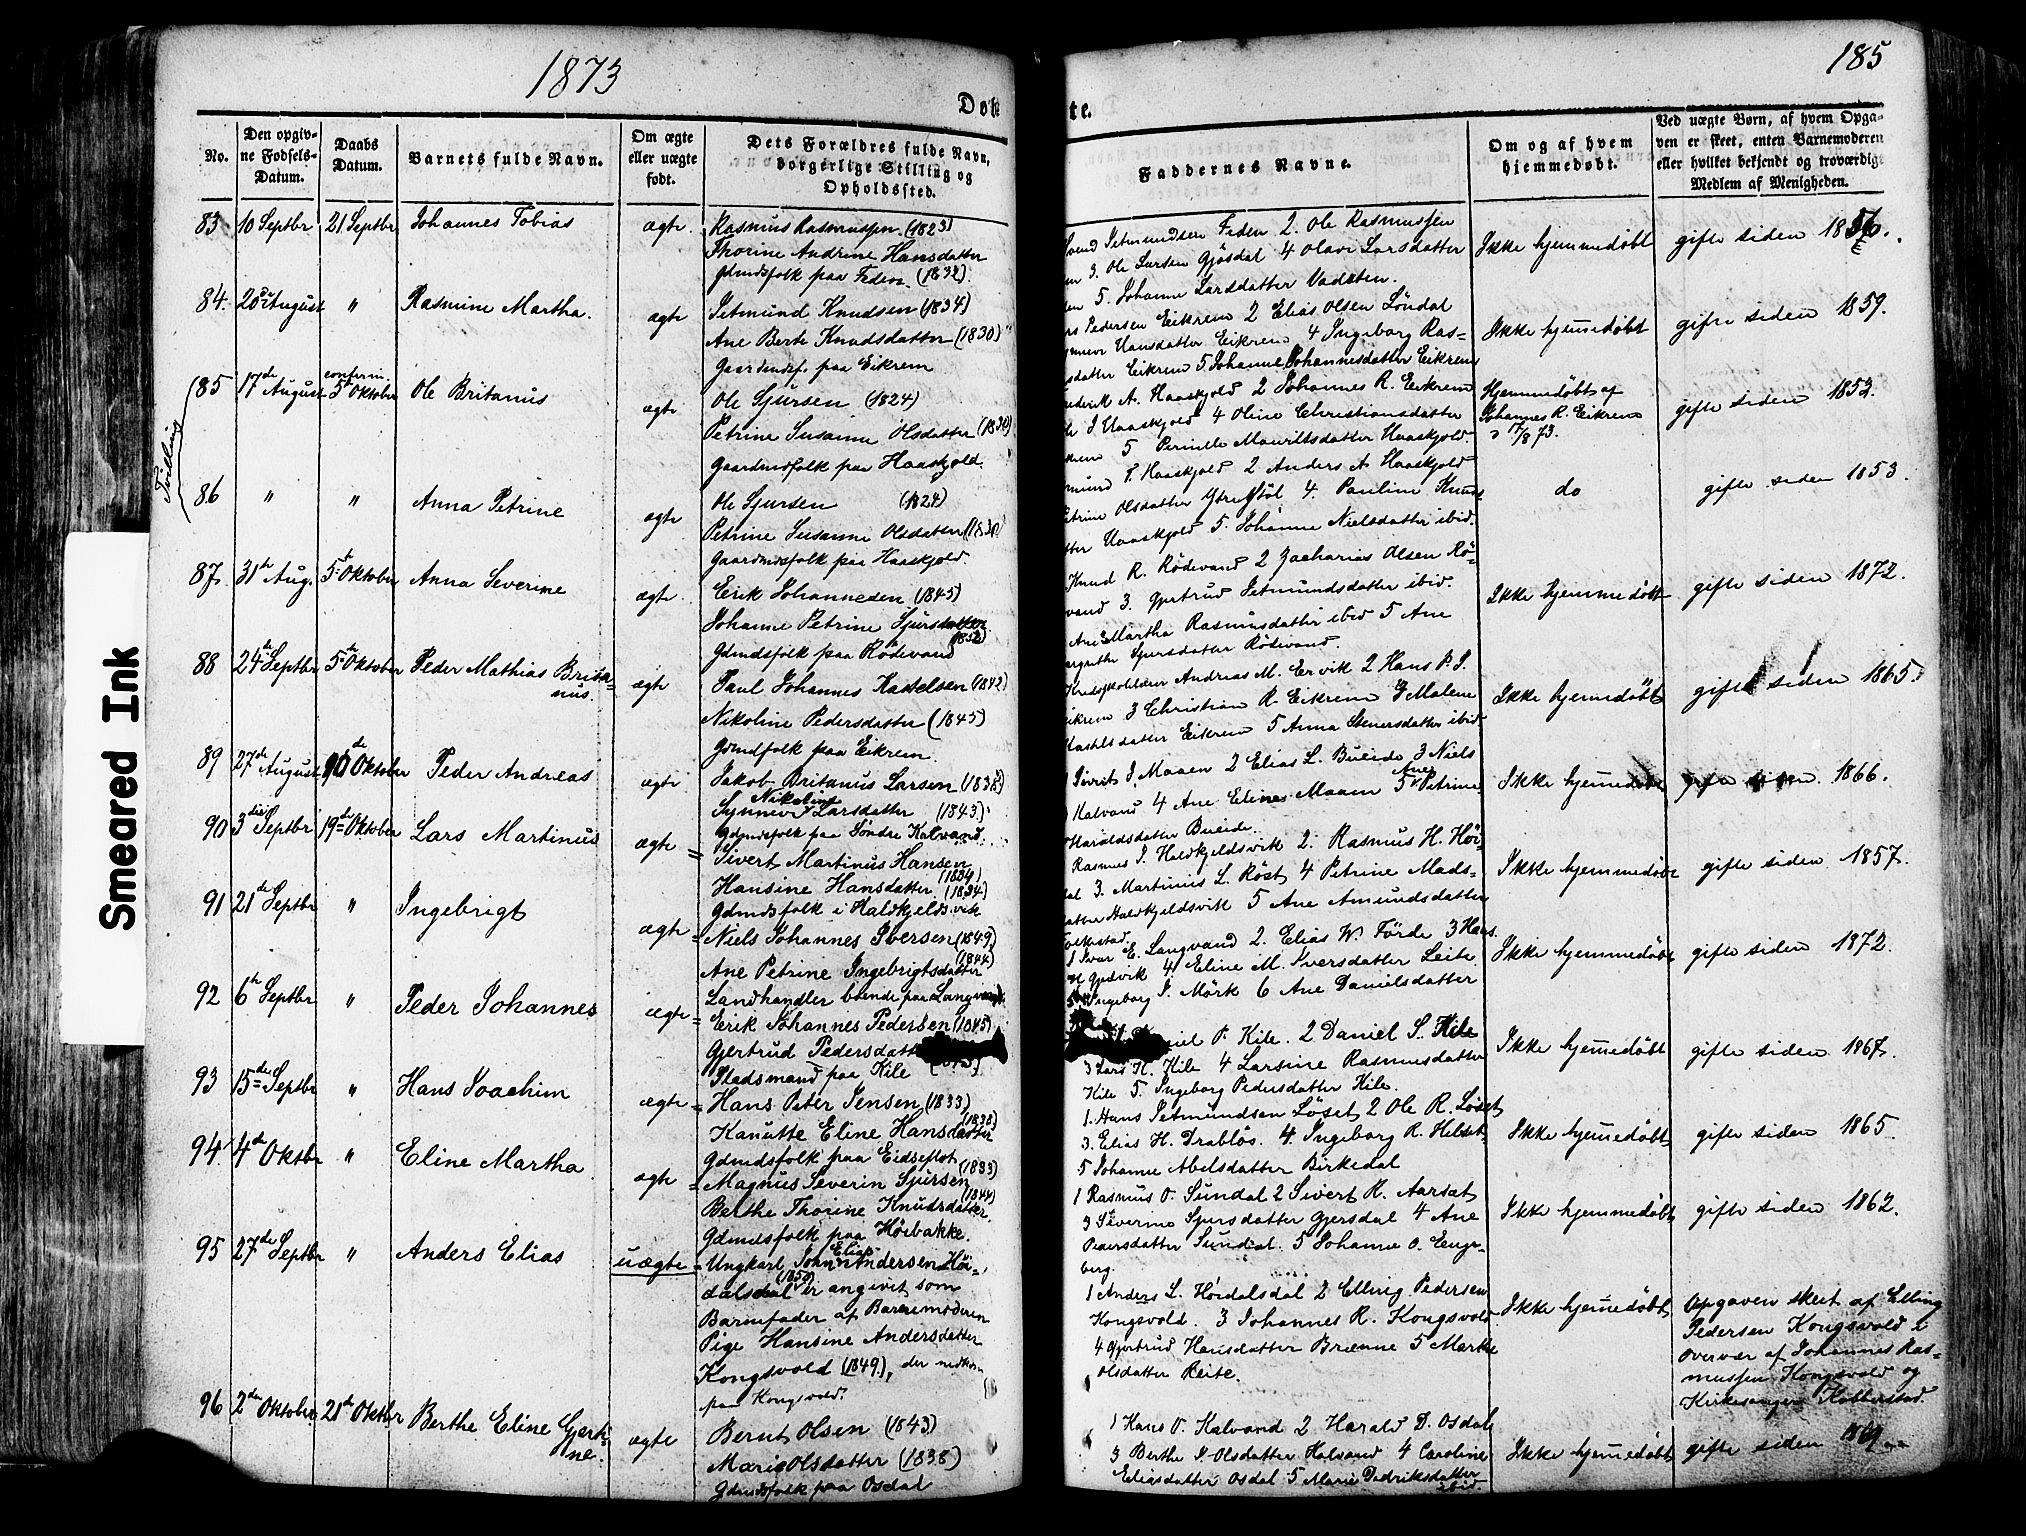 1873
185
Døb
te.
No.
Den opgiv-
ne Fødsels-
Datum.
Daabs
Datum.
Barnets fulde Navn.
Om ægte
eller uægte
født.
Dets Forældres fulde Navn,
borgerlige Stilling og
Opholdssted.
Faddernes Navne.
Om og af hvem
hjemmedøbt.
Ved uægte Børn, af hvem Opga-
ven er skeet, enten Barnemoderen
eller hvilket bekjendt og troværdigt
Medlem af Menigheden.
Smeared Ink
83 10 Septbr 21 Septbr Johannes Tobias ægte
Rasmus Rasmussen (1823)
Thorine Andrine Hansdatter
Gdmdsfolk paa Feden. (1832)
Setmundsen Feden 2. Ole Rasmussen
3. Ole Larsen Gjøsdal 4 Olave Larsdatter
5. Johanne Larsdatter Vadsten.
Ikke hjemmedøbt gifte siden 1856.
84. 20 August " Rasmine Martha. ægte
Setmund Knudsen (1834)
Ane Berte Knudsdatter (1830)
Gaardmdsf. paa Eikrem
Pedersen Eikrem 2 Elias Olsen Løndal
Hansdatter Eikrem 4 Ingeborg Ras-
datter Eikrem 5 Johanne Johannesdatter Eikrem
Ikke hjemmedøbt gifte siden 1859.
Tvilling
85 17de August confirm. 5te Oktober Ole Britanus ægte
Ole Sjursen (1824)
Petrine Susanne Olsdatter (1830)
Gaardmdfolk paa Haaskjold.
A. Haaskjold 2 Johannes R. Eikrem
Haaskjold 4 Oline Christiansdatter
5 Pernille Mauritsdatter Haaskjold.
Hjemmedøbt af
Johannes R. Eikrem
17/8 73.
gifte siden 1853.
86 " " Anna Petrine ægte
Ole Sjursen (1824)
Petrine Susanne Olsdatter (1830)
Gaardmdsfolk paa Haaskjold.
Haaskjold 2 Anders A Haaskjold
Olsdatter Ytrestøl 4. Pauline Knuds
Haaskjold 5. Johanne Nielsdatter ibid.
do gifte siden 1853.
87. 31te Aug. 5te Oktober Anna Severine ægte
Erik Johannesen (1845)
Johanne Petrine Sjursdatter
(1852)
Gdmdsfolk paa Rødevand
Knud R. Rødevand 2 Zacharias Olsen Rø-
vand 3. Gjertrud Setmundsdatter ibid.
Ane Martha Rasmusdatter ibid 5 Ane
Sjursdatter Rødevand.
Ikke hjemmedøbt gifte siden 1872.
88 24de Septbr 5te Oktober Peder Mathias Brita-
nus. ægte
Paul Johannes Kastelsen (1842)
Nikoline Pedersdatter (1845)
Gdmdfolk paa Eikrem.
Andreas M. Ervik 2 Hans P. S.
Eikrem 3 Christian R. Eikrem 4 Malene
Eikrem 5 Anna Stenersdatter ibid
Ikke hjemmedøbt gifte siden 1865.
89 27de August 10de Oktober Peder Andreas ægte
Jakob Britanus Larsen (1838)
Nikoline
Synnev Larsdatter (1843)
Gdmdsfolk paa Søndre Kalvand.
Sivert J Maaen 2 Elias L. Bueide 3 Niels
Kalvand 4 Ane Elines Maaen 5 Ane Petrine
Haraldsdatter Bueide.
Ikke hjemmedøbt gifte siden 1866.
90 3die Septbr 19de Oktober Lars Martinus ægte
Sivert Martinus Hansen
(1834)
Hansine Hansdatter (1834)
Gdmdsfolk i Haldkjeldsvik
Rasmus J. Haldkjeldsvik 2. Rasmus H. Høi-
dal 3. Martinus L. Røst 4 Petrine Mads-
datter Haldkjeldsvik 5 Ane Amundsdatter
Folkestad.
Ikke hjemmedøbt gifte siden 1857.
91 21de Septbr " Ingebrigt ægte
Niels Johannes Iversen (1849)
(1844)
Ane Petrine Ingebrigtsdatter
Landhandler boende paa Langvand
1 Ivar E. Langvand 2. Elias W. Førde 3 Hans
Gjedvik 4. Eline M. Iversdatter Leite
5 Ingeborg J. Mörk 6 Ane Danielsdatter
Ikke hjemmedøbt gifte siden 1872.
92 6te Septbr " Peder Johannes ægte
Erik Johannes Pedersen (1845)
Gjertrud Pedersdatt
Stadsmand paa Kile
P. Kile. 2 Daniel S. Kile
3 Lars H. Kile 4 Larsine Rasmusdatter
Kile 5. Ingeborg Pedersdatter Kile.
Ikke hjemmedøbt gifte siden 1867.
93 15de Septbr " Hans Joachim ægte
Hans Peter Jensen (1833)
(1838)
Kanutte Eline Hansdatter
Gdmdsfolk paa Eidseflot
1. Hans Setmundsen Løset 2 Ole R. Løset
3. Elias H. Drabløs. 4. Ingeborg R. Helset
5 Johanne Abelsdatter Birkedal
Ikke hjemmedøbt gifte siden 1865.
94 4de Oktbr " Eline Martha ægte
(1833)
Magnus Severin Sjursen
(1844)
Berthe Thorine Knudsdatter.
Gdmdsfolk paa Høibakke.
1 Rasmus O. Sundal 2 Sivert R. Aarsæt
3 Severine Sjursdatter Gjersdal 4 Ane
Pedersdatter Sundal. 5 Johanne O. Enge-
berg.
Ikke hjemmedøbt gifte siden 1862.
95 27de Septbr " Anders Elias uægte
Elias
Ungkarl John Andersen Høi-
dalsdal (1850) er angivet som
Barnefader af Barnemoderen
Pige Hansine Andersdatter
Kongsvold (1849), der nedkom
paa Kongsvold.
1 Anders L. Høidalsdal 2 Elling Pedersen
Kongsvold. 3 Johannes R. Kongsvold
4 Gjertrud Hansdatter Brænne 5 Marte
Olsdatter Reite.
Ikke hjemmedøbt
Opgaven skeet af Elling
Pedersen Kongsvold i
overvær af Johannes Ras-
mussen Kongsvold og
Kirkesanger Kobberstad.
96 2den Oktober 21de Oktbr Berthe Eline Gjerti-
ne. ægte
Bernt Olsen (1843)
Marie Olsdatter (1838)
Gdmdsfolk paa Osdal
1 Hans O. Kalvand 2 Harald D. Osdal
3 Berthe J. Olsdatter Halsand 4 Caroline
Eliasdatter Osdal 5 Marie Dedriksdatter
ibid.
Ikke hjemmedøbt gifte siden 1869